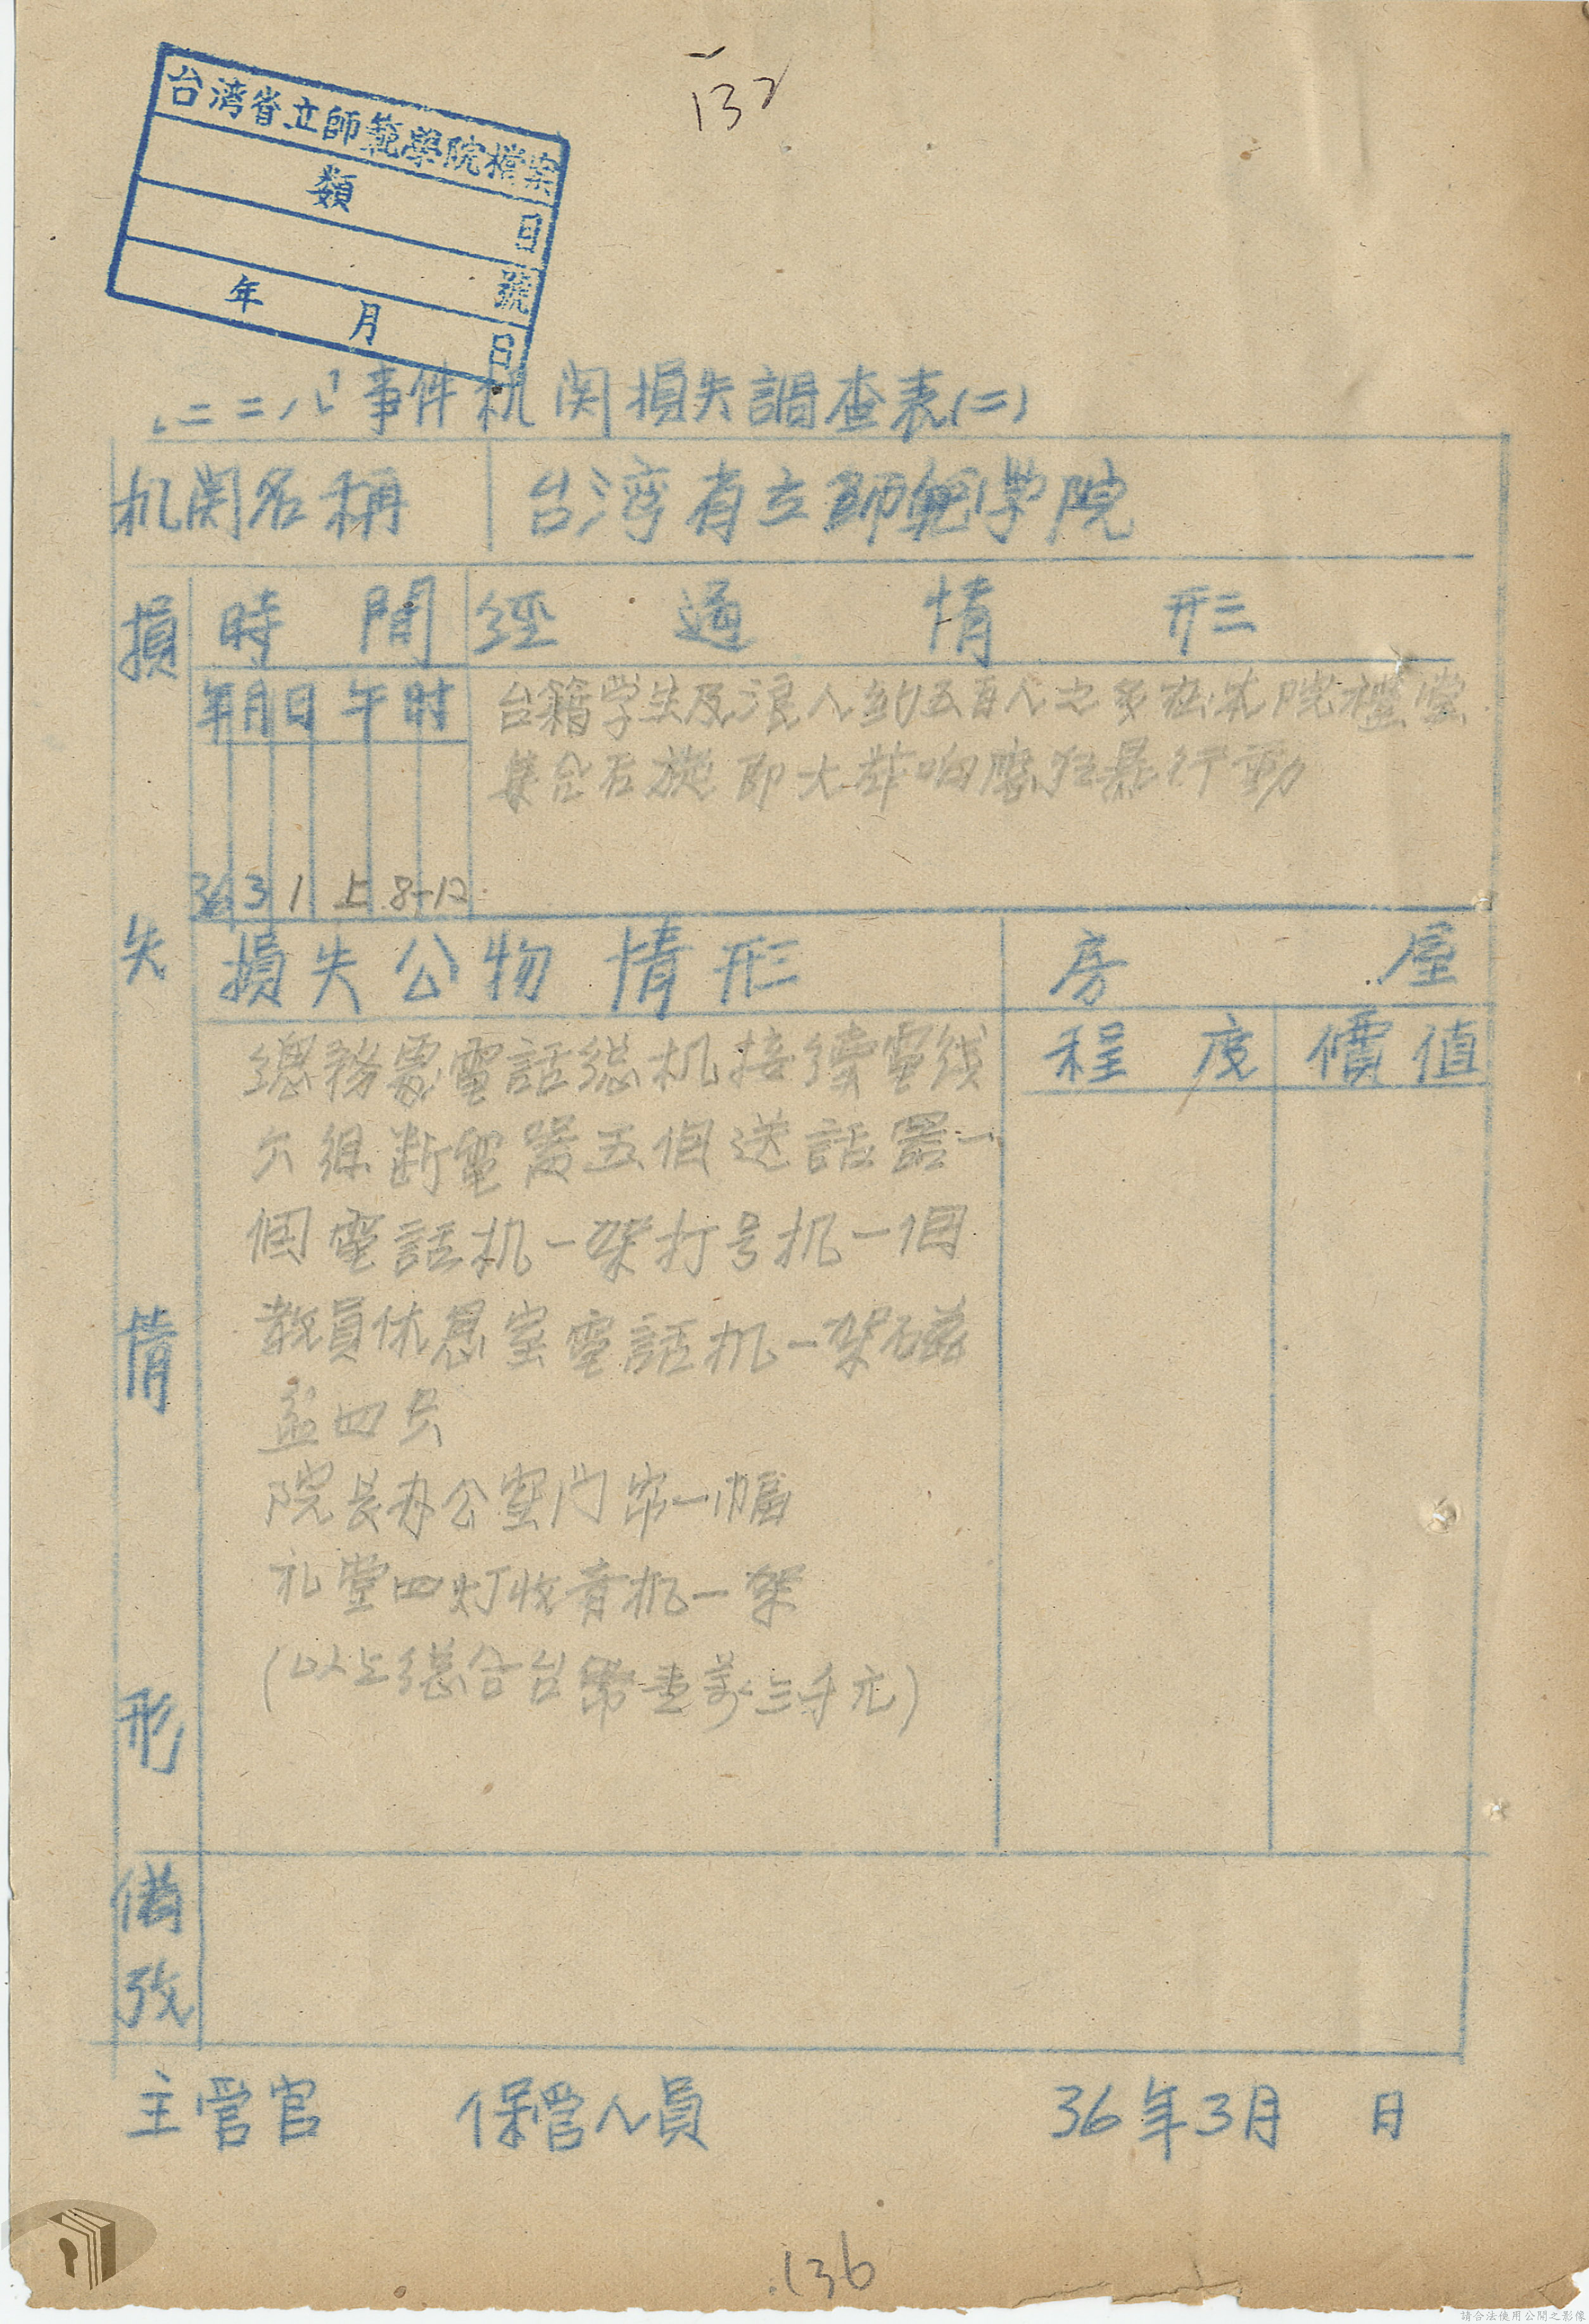 132
台湾省立師範學院檔案
類 目
號
年 月 日
「二二八」事件机関損失調查表(二)
机関名稱 台湾省立師範学院
損失情形
時間 經過情形
年月日午时
36 3 1 上 8-12
台籍学生及浪人約五百人之多在本院禮堂
集合后旋即大肆响應狂暴行動
損失公物情形 房屋
程度 價值
總務處電話總机接續電线
六組断電器五個送話器一
個電話机一架打号机一個
教員休息室電話机一架磁
盃四只
院長办公室門帘一幅
礼堂四灯收音机一架
(以上總合台幣壹萬三千元)
備攷
主管官 保管人員 36年3月 日
136
請合法使用公開之影像